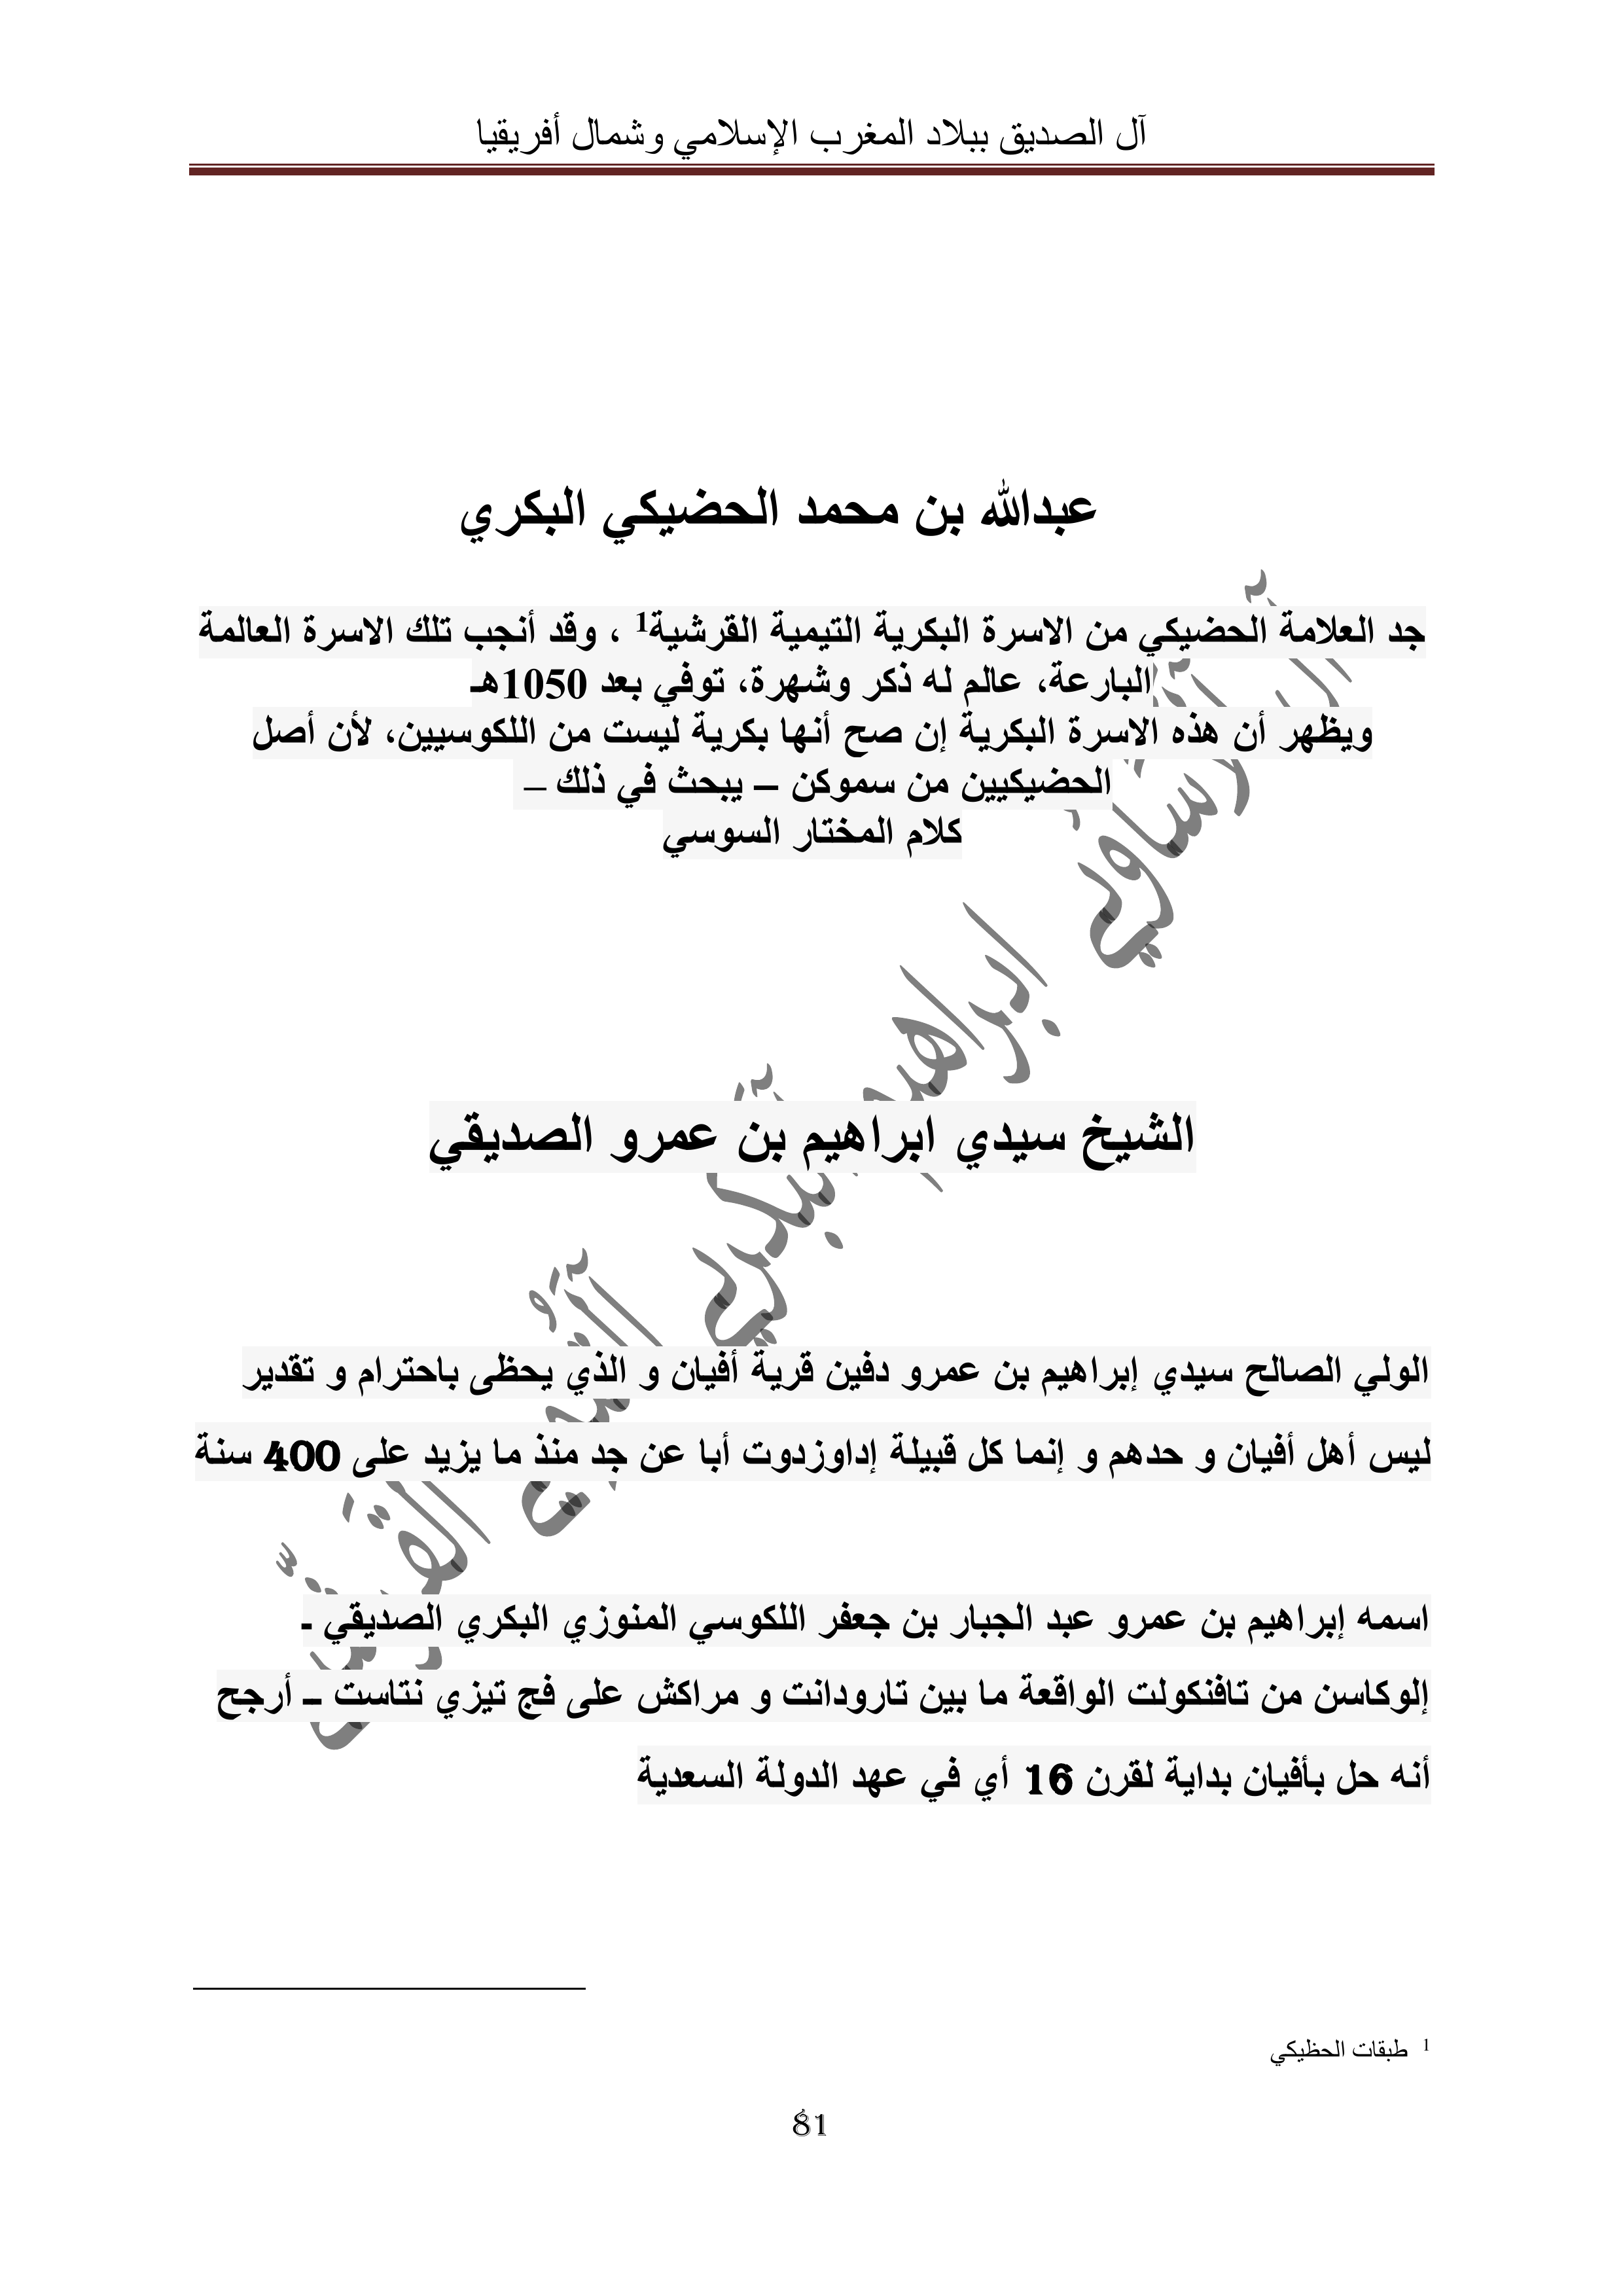 آل الصديق ببلاد المغرب الإسلامي وشمال أفريقيا
عبدالله بن محمد الحضيكي البكري
جد العلامة الحضيكي من الاسرة البكرية التيمية القرشية1 ، وقد أنجب تلك الاسرة العالمة
البارعة، عالم له ذكر وشهرة، توفي بعد 1050هـ
ويظهر أن هذه الاسرة البكرية إن صح أنها بكرية ليست من اللكوسيين، لأن أصل
الحضيكيين من سموكن – يبحث في ذلك –
كلام المختار السوسي
الشيخ سيدي ابراهيم بن عمرو الصديقي
الولي الصالح سيدي إبراهيم بن عمرو دفين قرية أفيان و الذي يحظى باحترام و تقدير
ليس أهل أفيان و حدهم و إنما كل قبيلة إداوزدوت أبا عن جد منذ ما يزيد على 400 سنة
اسمه إبراهيم بن عمرو عبد الجبار بن جعفر اللكوسي المنوزي البكري الصديقي ـ
إلوكاسن من تافنكولت الواقعة ما بين تارودانت و مراكش على فج تيزي نتاست ــ أرجح
أنه حل بأفيان بداية لقرن 16 أي في عهد الدولة السعدية
1 طبقات الحظيكي
81